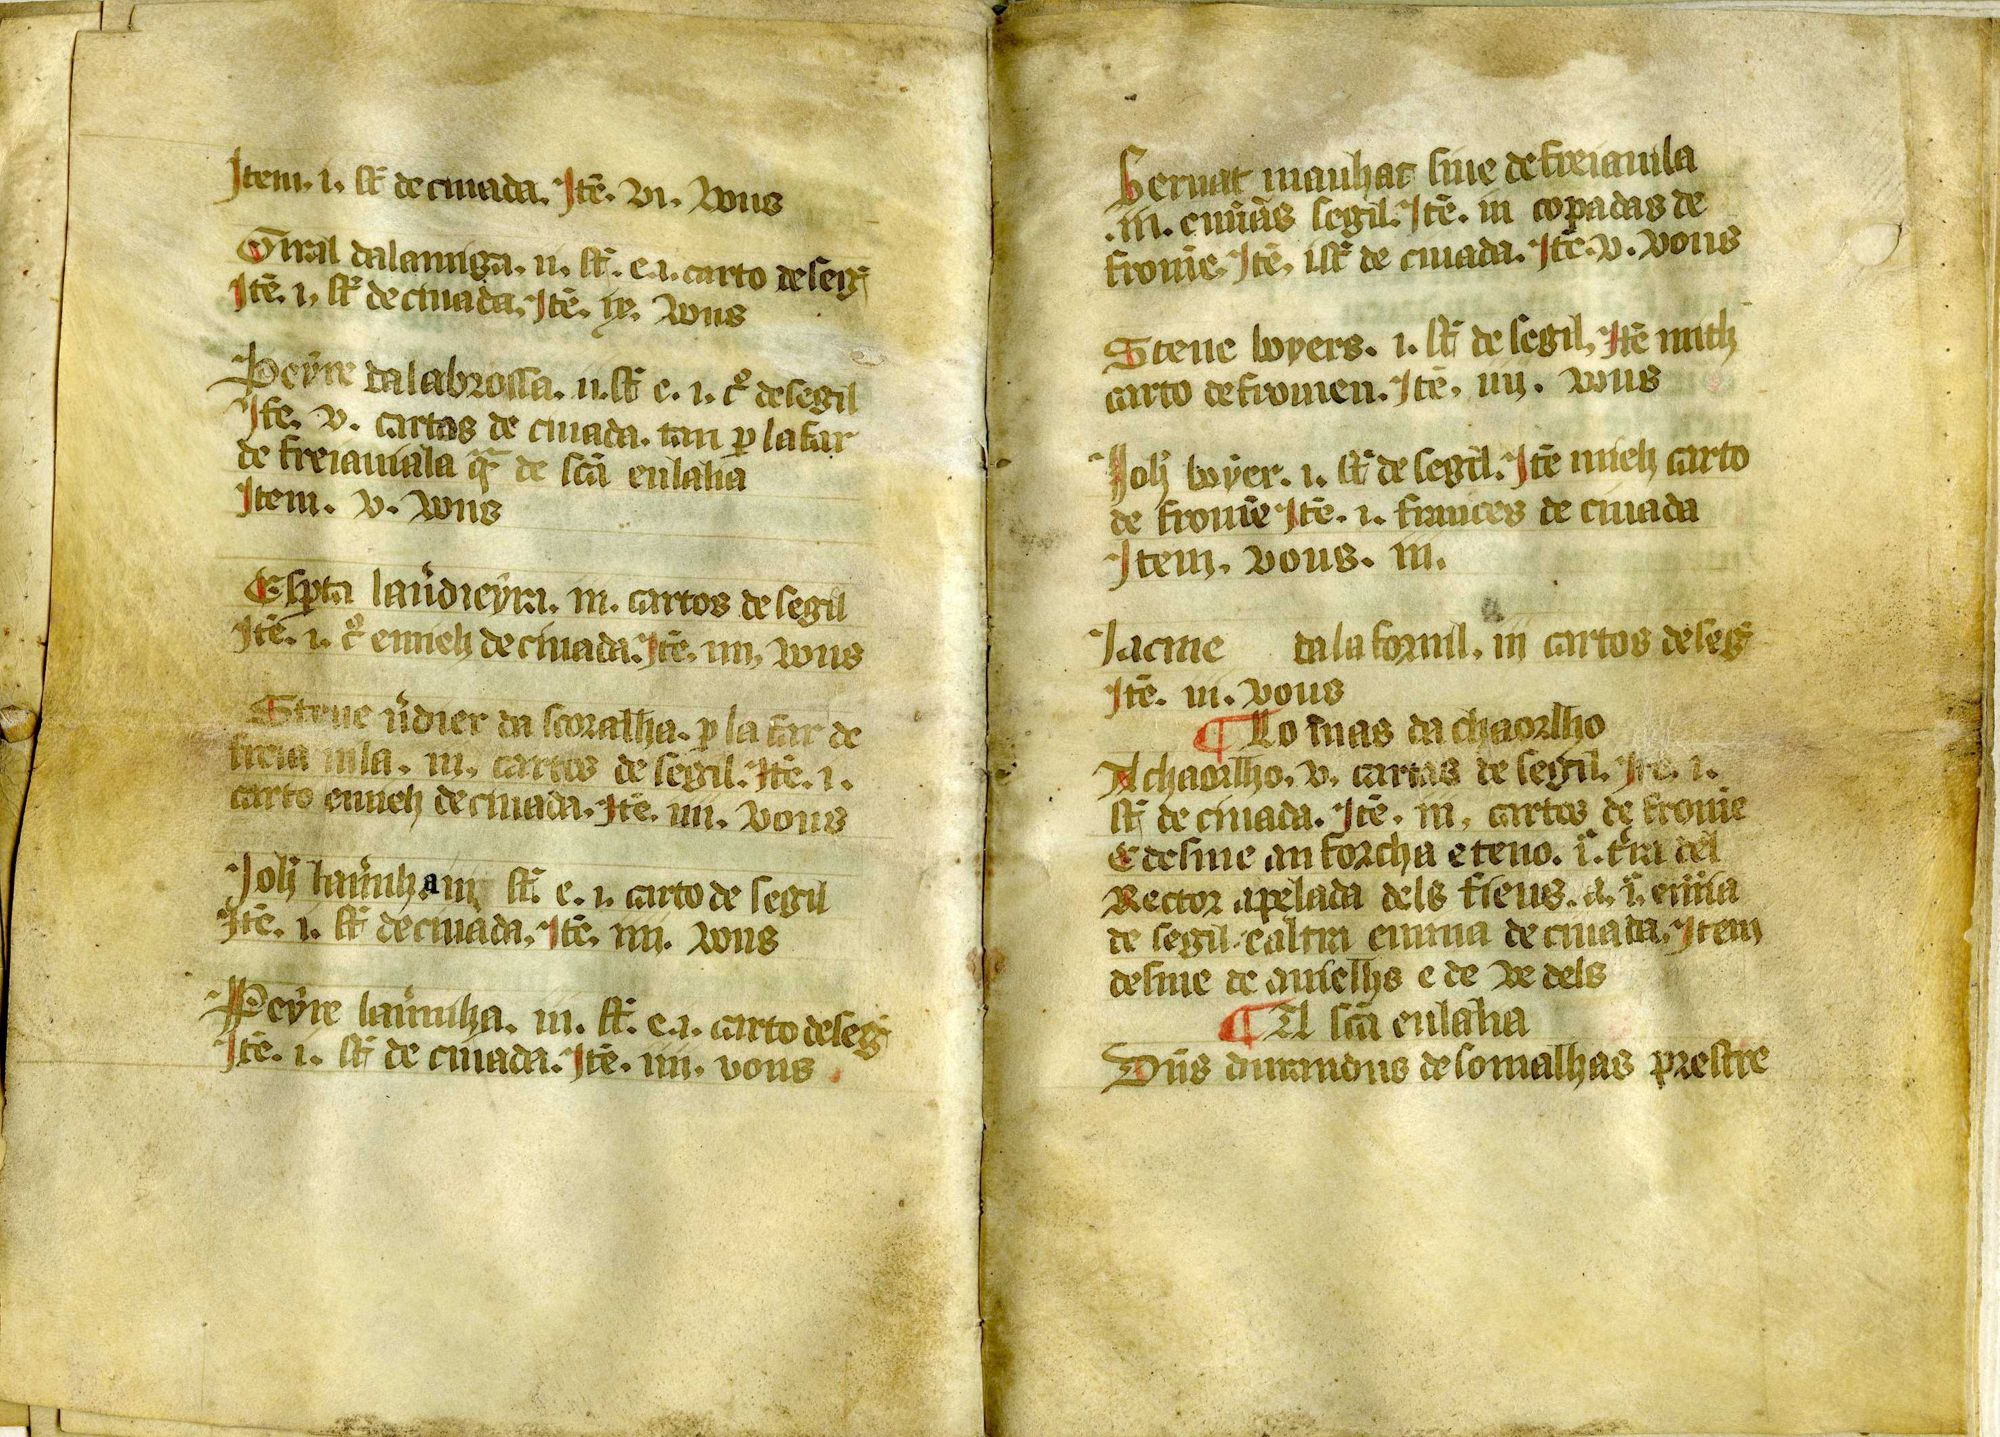 Item. i. st̄ de ciuada. Itē. vi. vous
Giral dalauuiga. ii. st̄. e. i. carto de seig̃
Itē. i. st̄ de ciuada. Itē. ix. vous
Peyre dalabrossa. ii. st̄ e. i. c̊ de segil
Itē. v. cartos de ciuada. tan p̱ la far
de freiauiala de sc̄a eulalia
Item. v. vous
Esp̱ta lau̾dieyra. iii. cartos de segil
Itē. i. c̊ e mieh de ciuada. Itē. iiii. vous
Steue u̾dier da scoralha. p̱ la far de
freia uila. iii. cartos de segil. Itē. i.
carto e mieh de ciuada. Itē. iiii. vous
Joh̄ st̄ e. i. carto de segil
Itē. i. st̄ de ciuada. Itē. iiii. vous
Peyre iii. st̄. e. i. carto de seg̃
Itē. i. st̄ de ciuada. Itē. iiii. vous
Bernat mauhac siue de freiauila
.iii. eminas segil. Itē. iii copadas de
fromē. Itē. i st̄ de ciuada. Itē. v. vous
Steue boyers. i. st̄ de segil. Itē mieh
carto de fromen. Itē. iiii. vous
Joh̄ boyer. i. st̄ de segil. Itē mieh carto
de fromē Itē. i. frances de ciuada
Item. vous. iii.
Jacme da la fornil. iii cartos de seg̃
Itē. iii. vous
¶ Lo mas da chaorlho
A chaorlho. v. cartas de segil. Itē. i.
st̄ de ciuada. Itē. iii. cartos de fromē
E desme an forcha e teno. i̾. t̾ra del
Rector apelada dels fieus. a. i̾. emina
de segil. e altra emina de ciuada. Item
desme de anielhs e de vedels
¶ A sc̄a eulalia
Dūs durandus de somalhas prestre